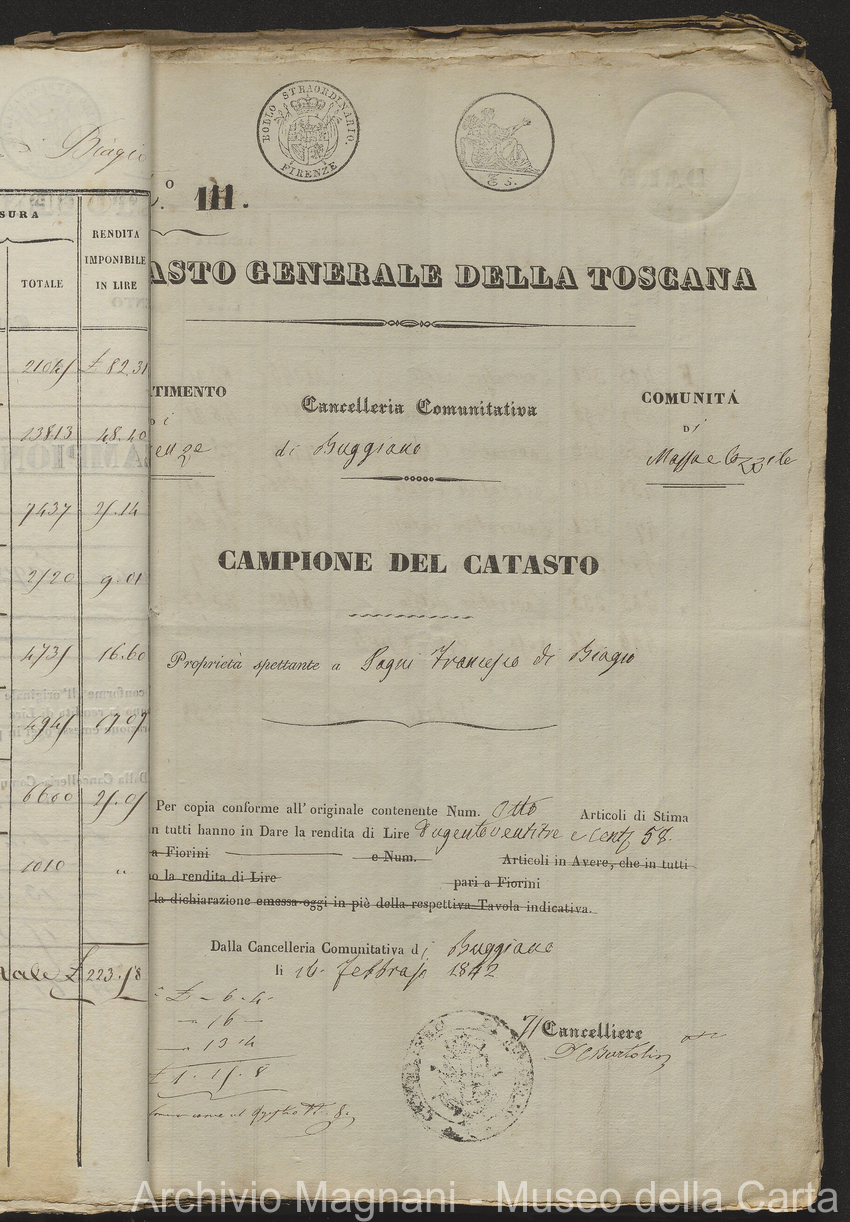 Biagio
SURA
TOTALE
RENDITA
IMPONIBILE
IN LIRE
£ 82.31
13813 48.40
7437 25.14
2520 9.01
4735 16.60
4945 17.07
6600 25.05
1010 "
£ 223.58
BOLLO STRAORDINARIO.
FIRENZE
.° 111.
ASTO GENERALE DELLA TOSCANA
TIMENTO
Cancelleria Comunitativa
COMUNITÁ
di
enze
di Buggiano
DI
Massa e Cozzile
CAMPIONE DEL CATASTO
Proprietà spettante a Pagni Francesco di Biagio
Per copia conforme all' originale contenente Num. Otto Articoli di Stima
n tutti hanno in Dare la rendita di Lire Dugentoventitre e Cent. 58.
a Fiorini e Num. Articoli in Avere, che in tutti
o la rendita di Lire pari a Fiorini
la dichiarazione emessa oggi in piè della respettiva Tavola indicativa.
Dalla Cancelleria Comunitativa di Buggiano
li 14. Febbraio 1842
£ - 6. 4.
- 16 -
- 13 4
£ 1. 15. 8
Il Cancelliere
Archivio Magnani - Museo della Carta